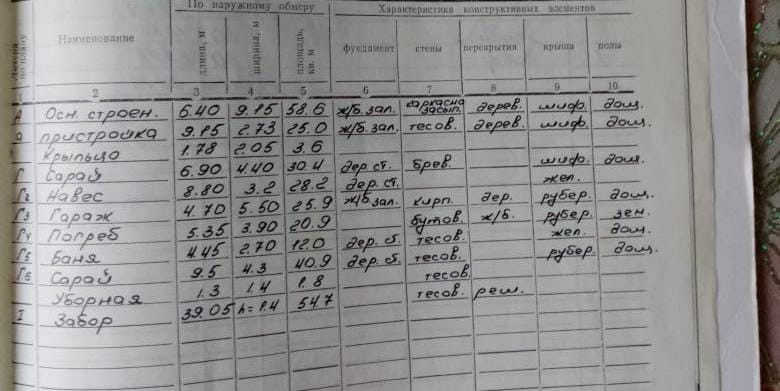 Литера по плану Наименование По наружному обмеру Характеристика конструктивных элементов
длина, м ширина, м площадь, кв. м фундамент стены перекрытия крыша полы
1 2 3 4 5 6 7 8 9 10
А Осн. строен. 6.40 9.15 58.6 ж/б.зал. каркасно засып. дерев. шиф. дощ.
а пристройка 9.15 2.73 25.0 ж/б.зал. тесов. дерев. шиф. дощ.
Крыльцо 1.78 2.05 3.6
Г Сарай 6.90 4.40 30.4 дер. ст. брев. шиф. дощ.
Г2 Навес 8.80 3.2 28.2 дер. ст. жел.
Г3 Гараж 4.70 5.50 25.9 ж/б зал. кирп. дер. рубер. дощ.
Г4 Погреб 5.35 3.90 20.9 бутов. ж/б. рубер. зем.
Г5 Баня 4.45 2.70 12.0 дер. ст. тесов. жел. дощ.
Г6 Сарай 9.5 4.3 40.9 дер. ст. тесов. рубер. дощ.
Уборная 1.3 1.4 1.8 тесов.
I Забор 39.05 h=1.4 54.7 тесов. реш.